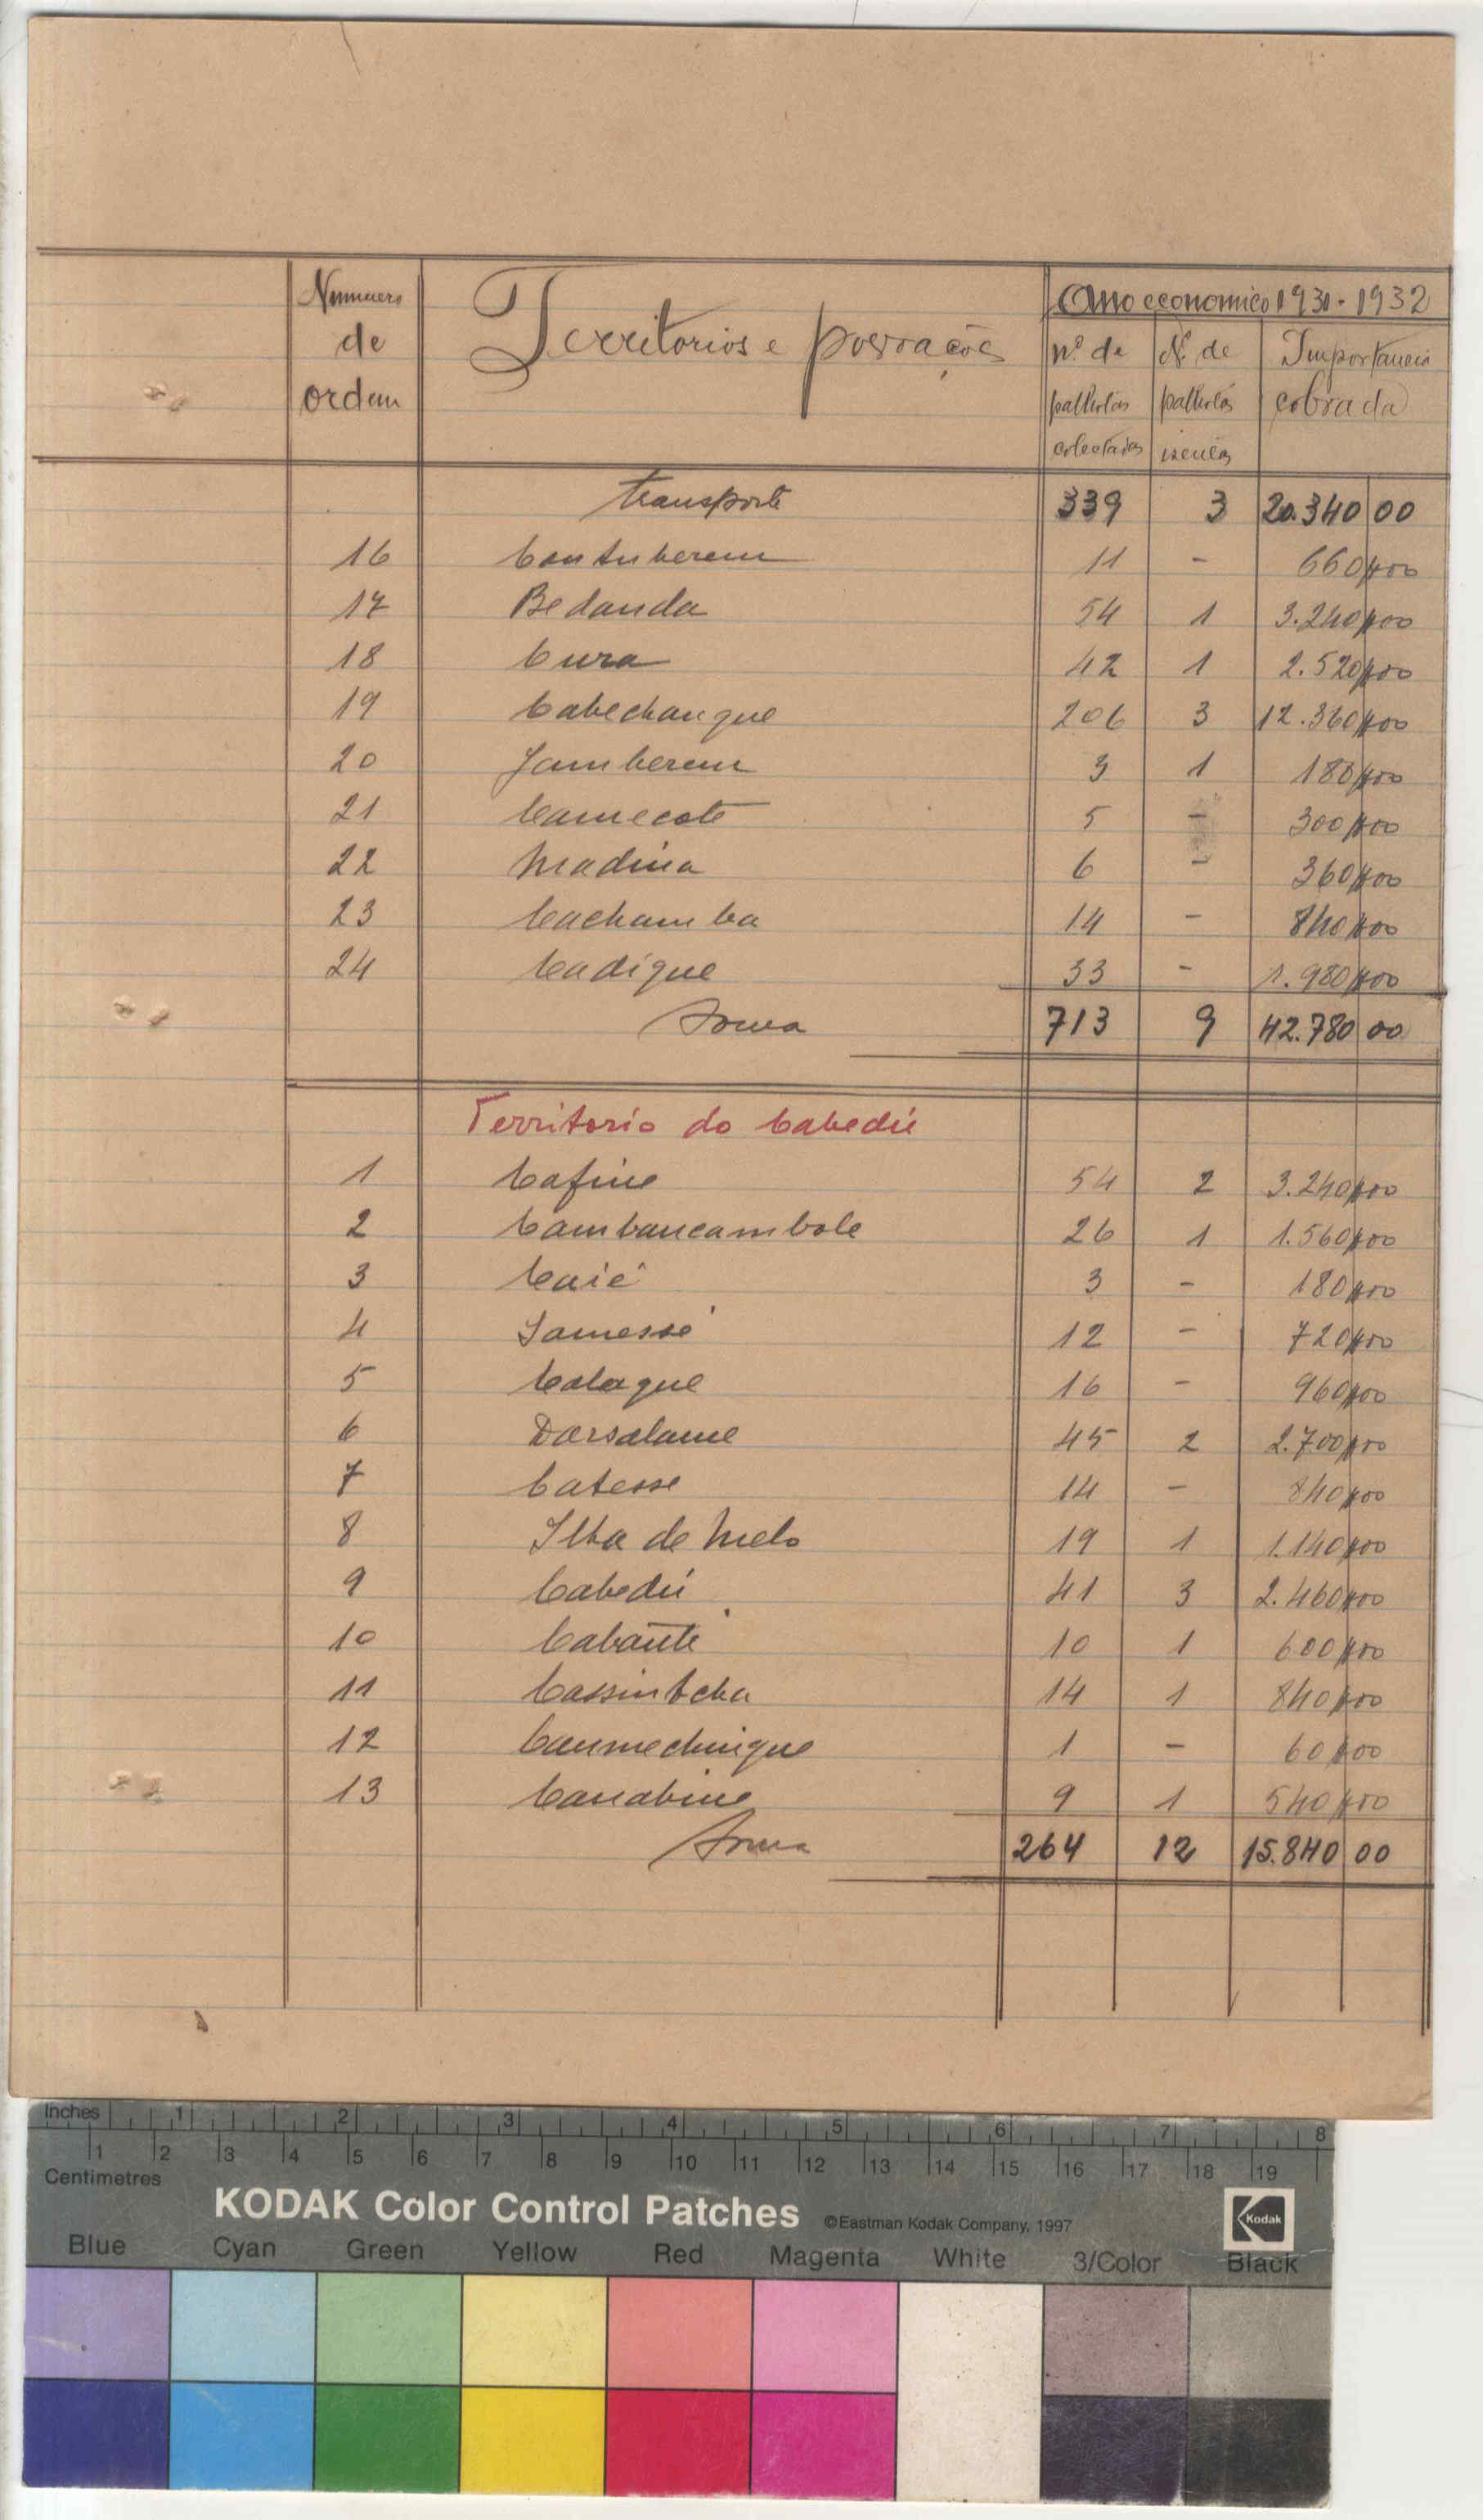 Numero de ordem | Territorios e povoações | Ano economico 1931-1932
nº de palhotas colectadas | Nº de palhotas isentas | Importancia cobrada
Transporte 339 3 20.340 00
16 Contuberem 11 - 660$00
17 Bedanda 54 1 3.240$00
18 Cura 42 1 2.520$00
19 Cabechanque 206 3 12.360$00
20 Jamberem 3 1 180$00
21 Camecote 5 - 300$00
22 Madina 6 - 360$00
23 Cachamba 14 - 840$00
24 Cadique 33 - 1.980$00
Soma 713 9 42.780 00
Territorio do Cabedú
1 Cafine 54 2 3.240$00
2 Cambancambole 26 1 1.560$00
3 Caié 3 - 180$00
4 Iamessé 12 - 720$00
5 Calaque 16 - 960$00
6 Darsalame 45 2 2.700$00
7 Catesse 14 - 840$00
8 Ilha de Melo 19 1 1.140$00
9 Cabedú 41 3 2.460$00
10 Cabanté 10 1 600$00
11 Cassintcha 14 1 840$00
12 Caumechinque 1 - 60$00
13 Canabine 9 1 540$00
Soma 264 12 15.840 00
Inches 1 2 3 4 5 6 7 8
1 2 3 4 5 6 7 8 9 10 11 12 13 14 15 16 17 18 19
Centimetres
KODAK Color Control Patches ©Eastman Kodak Company, 1997 Kodak
Blue Cyan Green Yellow Red Magenta White 3/Color Black